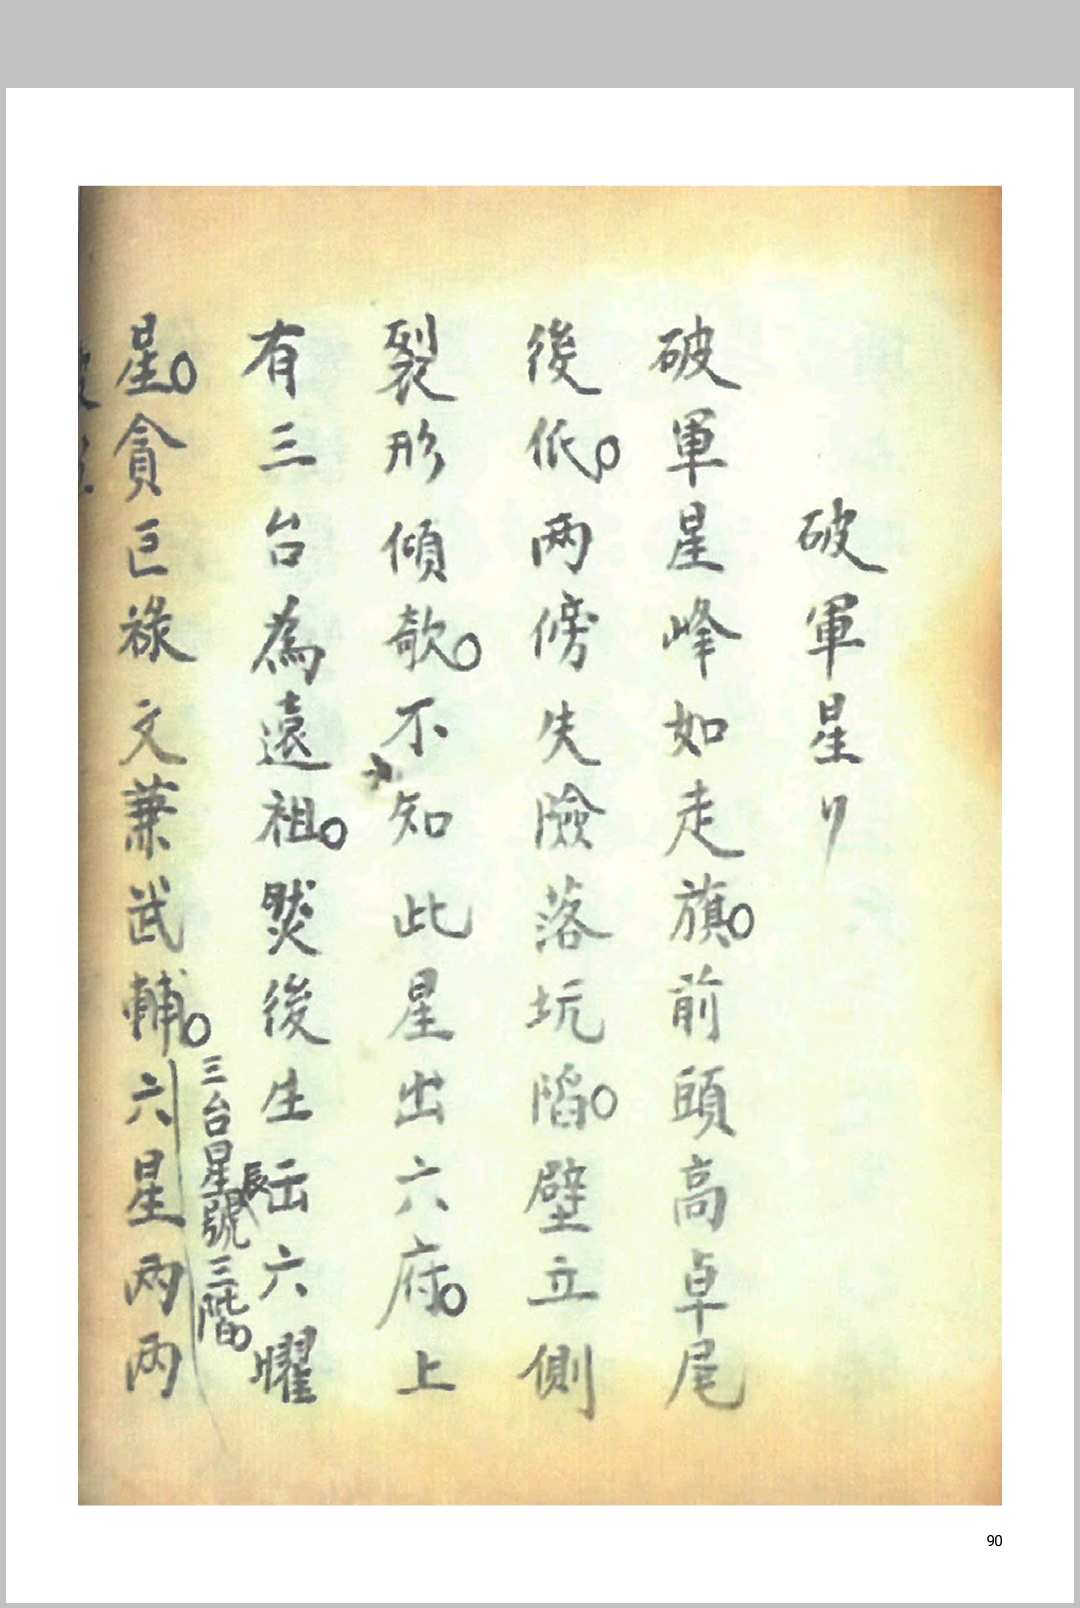 破軍星
破軍星峰如走旗○前頭高卓尾
後低○兩傍失險落坑陷○壁立側
裂形傾欹○不知此星出六府○上
有三台為遠祖○然後生五六曜
三台星號三階○
星○貪巨祿文蕪武輔○六星兩兩
90